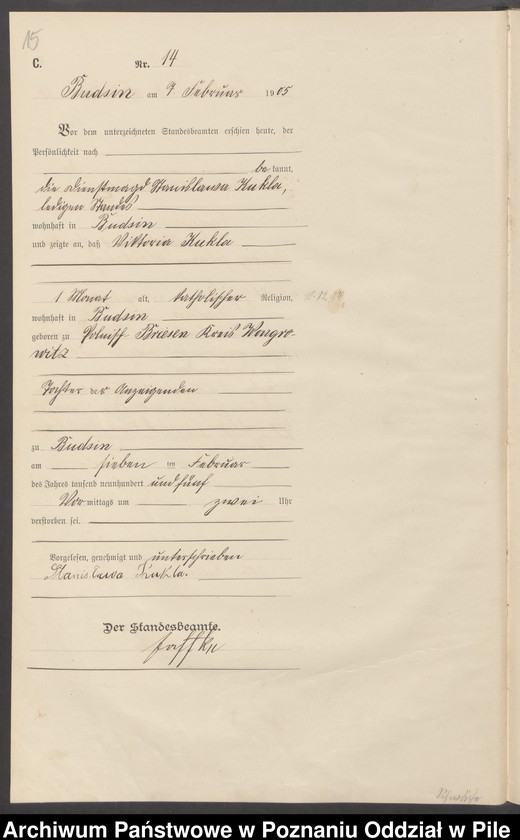 15
C.
Nr. 14
Budsin am 9 Februar 1905
Vor dem unterzeichneten Standesbeamten erschien heute, der
Persönlichkeit nach
be kannt,
die Dienstmagd Stanislawa Kukla,
ledigen Standes
wohnhaft in Budsin
und zeigte an, daß Viktoria Kukla
1 Monat alt, katholischer Religion,
wohnhaft in Budsin
geboren zu Polnisch Briesen Kreis Wongro-
witz
Tochter der Anzeigenden
zu Budsin
am sieben ten Februar
des Jahres tausend neunhundert und fünf
Vor mittags um zwei Uhr
verstorben sei.
Vorgelesen, genehmigt und unterschrieben
Stanislawa Kukla.
Der Standesbeamte.
Archiwum Państwowe w Poznaniu Oddział w Pile